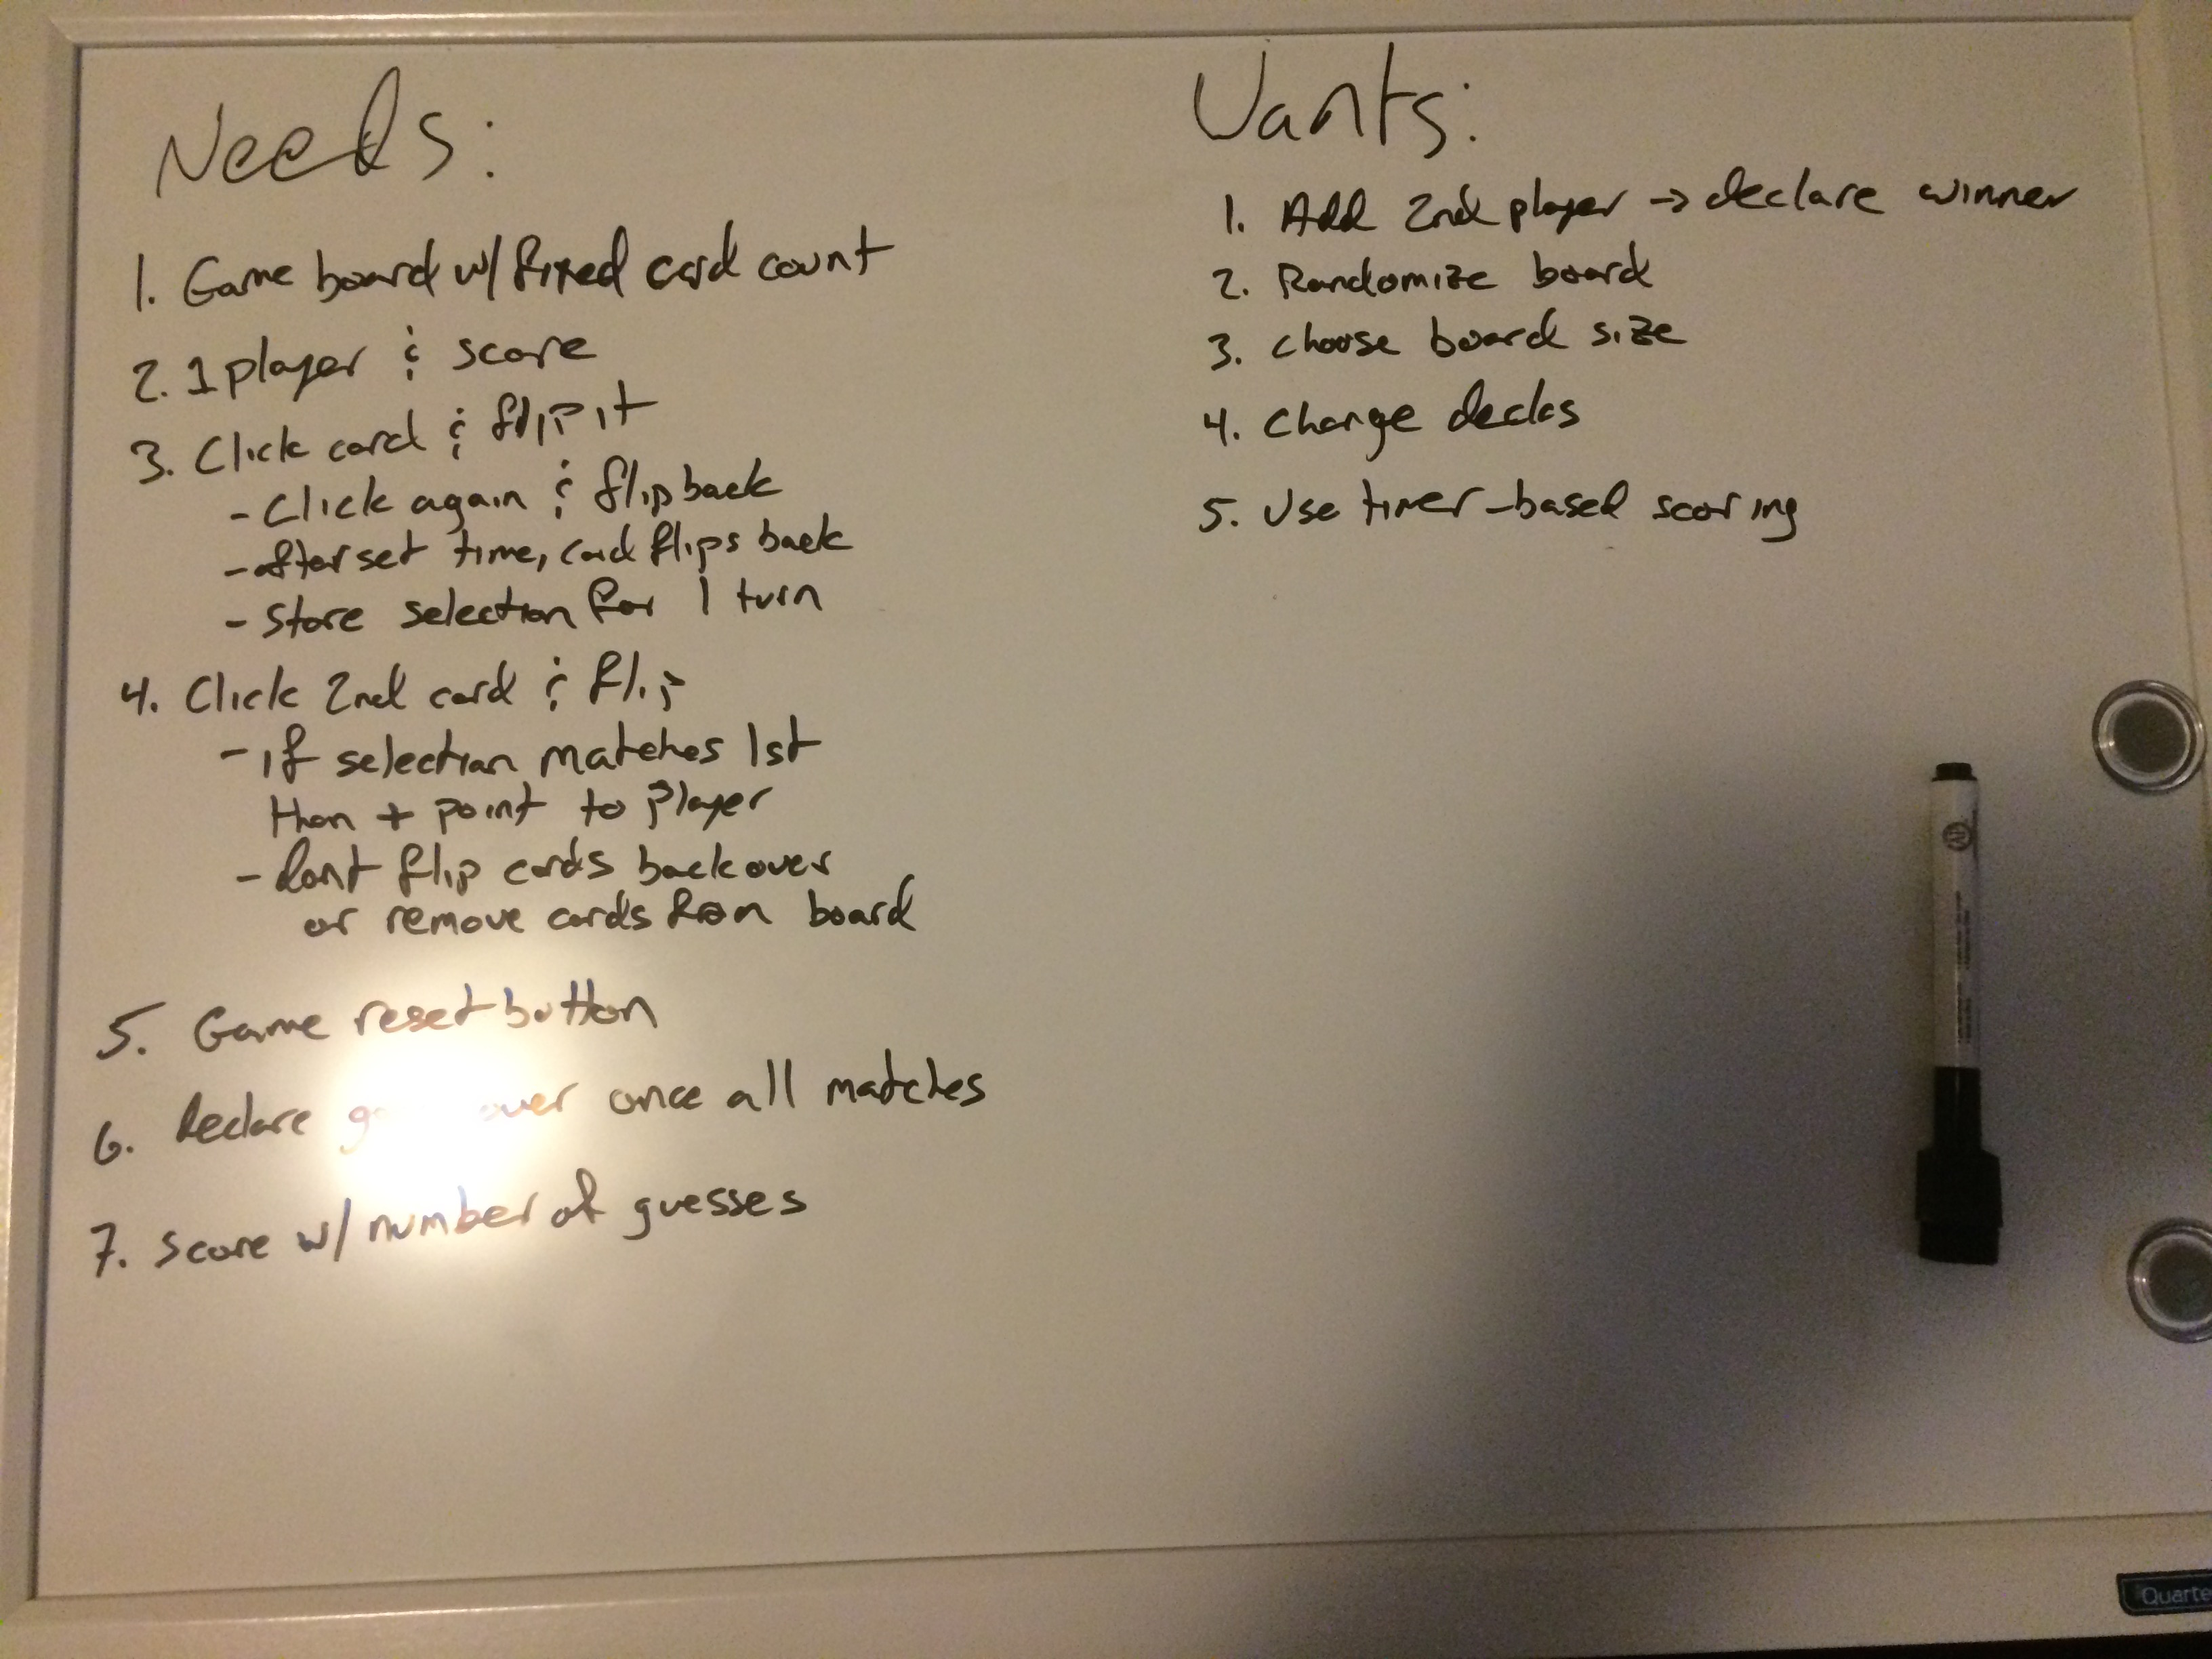 Needs:
1. Game board w/ fixed card count
2. 1 player & score
3. Click card & flip it
- Click again & flip back
- after set time, card flips back
- Store selection for 1 turn
4. Click 2nd card & flip
- if selection matches 1st
then + point to player
- dont flip cards back over
or remove cards from board
5. Game reset button
6. Declare over once all matches
7. Score w/ number of guesses
Wants:
1. Add 2nd player → declare winner
2. Randomize board
3. choose board size
4. Change decks
5. Use timer-based scoring
Quarte